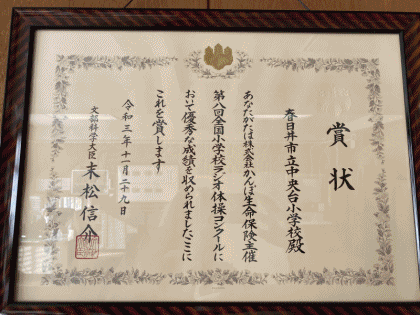 賞状
春日井市立中央台小学校殿
あなたがたは株式会社かんぽ生命保険主催
第八回全国小学校ラジオ体操コンクールに
おいて優秀な成績を収められましたここに
これを賞します
令和三年十一月二十九日
文部科学大臣 末松信介